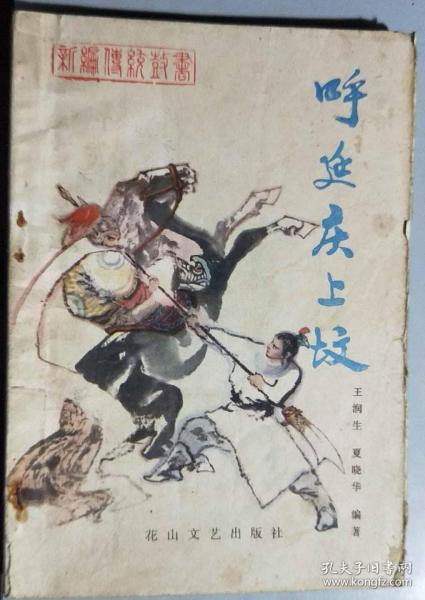 新编傳統鼓書
呼延庆上坟
王润生 夏晓华 编著
花山文艺出版社
孔夫子旧书网
www.kongfz.com